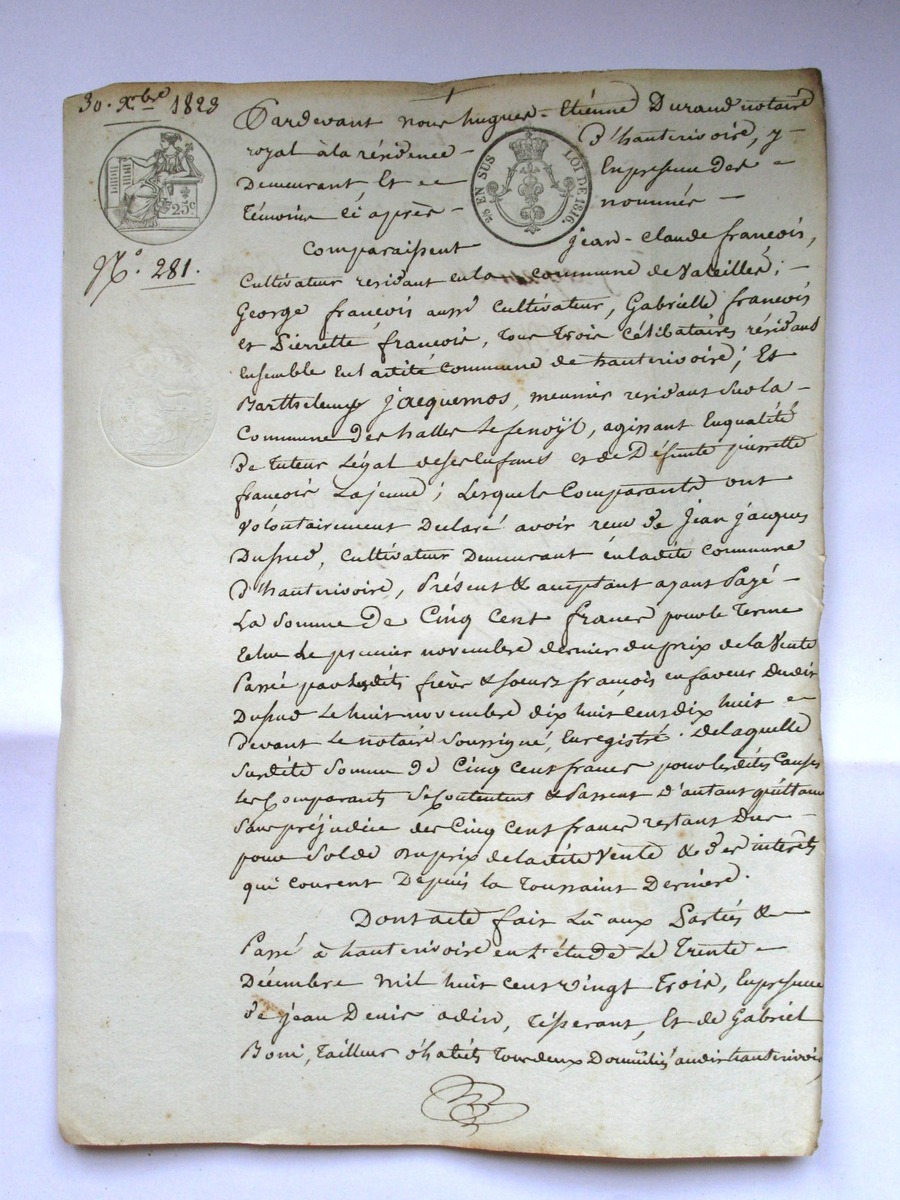 30. Xbre 1823
25c
25 EN SUS LOI DE 1816.
N.° 281.
Pardevant nous hugues - Etienne Durand notaire
royal à la résidence - d'hauterivoire, y -
Demeurant Et - En presence des -
témoins ci après - nommés -
Comparaissent jean - claude francois,
Cultivateur residant en la commune de Vareilles; -
George francois aussi Cultivateur, Gabrielle francois
et Pierrette francois, tous trois Célibataires résidans
Ensemble En laditte Commune de hauterivoire; Et
Barthelemy jacquemos, meunier residant sur la -
Commune des halles Le fenoÿl, agissant En qualité
de tuteur Légal de ses Enfans et de Défunte pierrette
francois La jeune; Lesquels Comparants ont
Volontairement Declaré avoir recu de Jean jacques
Dufud, Cultivateur Demeurant en ladite Commune
d'hauterivoire, Présent & acceptant ayant Payé -
La Somme De Cinq Cent francs pour le Terme
Echu Le premier novembre dernier du prix de la Vente
Passée par Lesdits frère & soeurs francois en faveur dudit
Dufud Le huit novembre dix huit cent dix huit -
devant Le notaire Soussigné, Enregistré. De laquelle
Susdite Somme de Cinq Cent francs pour lesdits Causes
les Comparants Se Contentent & Passent D'autant quittance
Sans préjudice des Cinq Cent francs restant Dus -
pour Solde du prix de la dite Vente & des interets
qui courent Depuis la Toussaint Derniere.
Dont acte fait Lu aux Parties & -
Passé à hauterivoire en L'étude Le Trente -
Décembre mil huit cent vingt Trois, En presence
de jean Denis adin, Tisserant, Et de Gabriel
Boni, Tailleur d'habits Tous deux Domiciliés audit hauterivoir